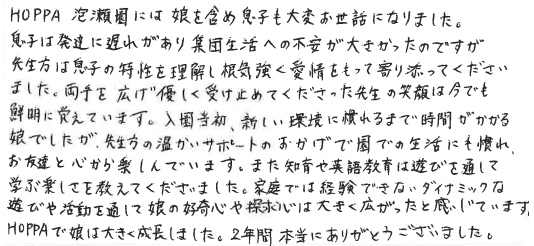 HOPPA 泡瀬園には 娘を含め息子も大変お世話になりました。
息子は発達に遅れがあり集団生活への不安が大きかったのですが
先生方は息子の特性を理解し根気強く愛情をもって寄り添ってください
ました。両手を広げ優しく受け止めてくださった先生の笑顔は今でも
鮮明に覚えています。入園当初、新しい環境に慣れるまで時間がかかる
娘でしたが、先生方の温かいサポートのおかげで園での生活にも慣れ、
お友達と心から楽しんでいます。また知育や英語教育は遊びを通して
学ぶ楽しさを教えてくださいました。家庭では経験できないダイナミックな
遊びや活動を通して娘の好奇心や探求心は大きく広がったと感じています。
HOPPAで娘は大きく成長しました。2年間本当にありがとうございました。